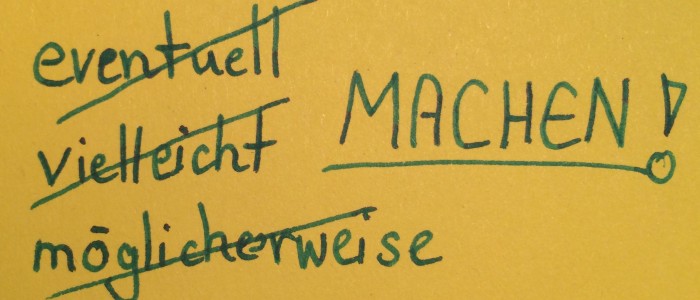 eventuell
vielleicht
möglicherweise
MACHEN!